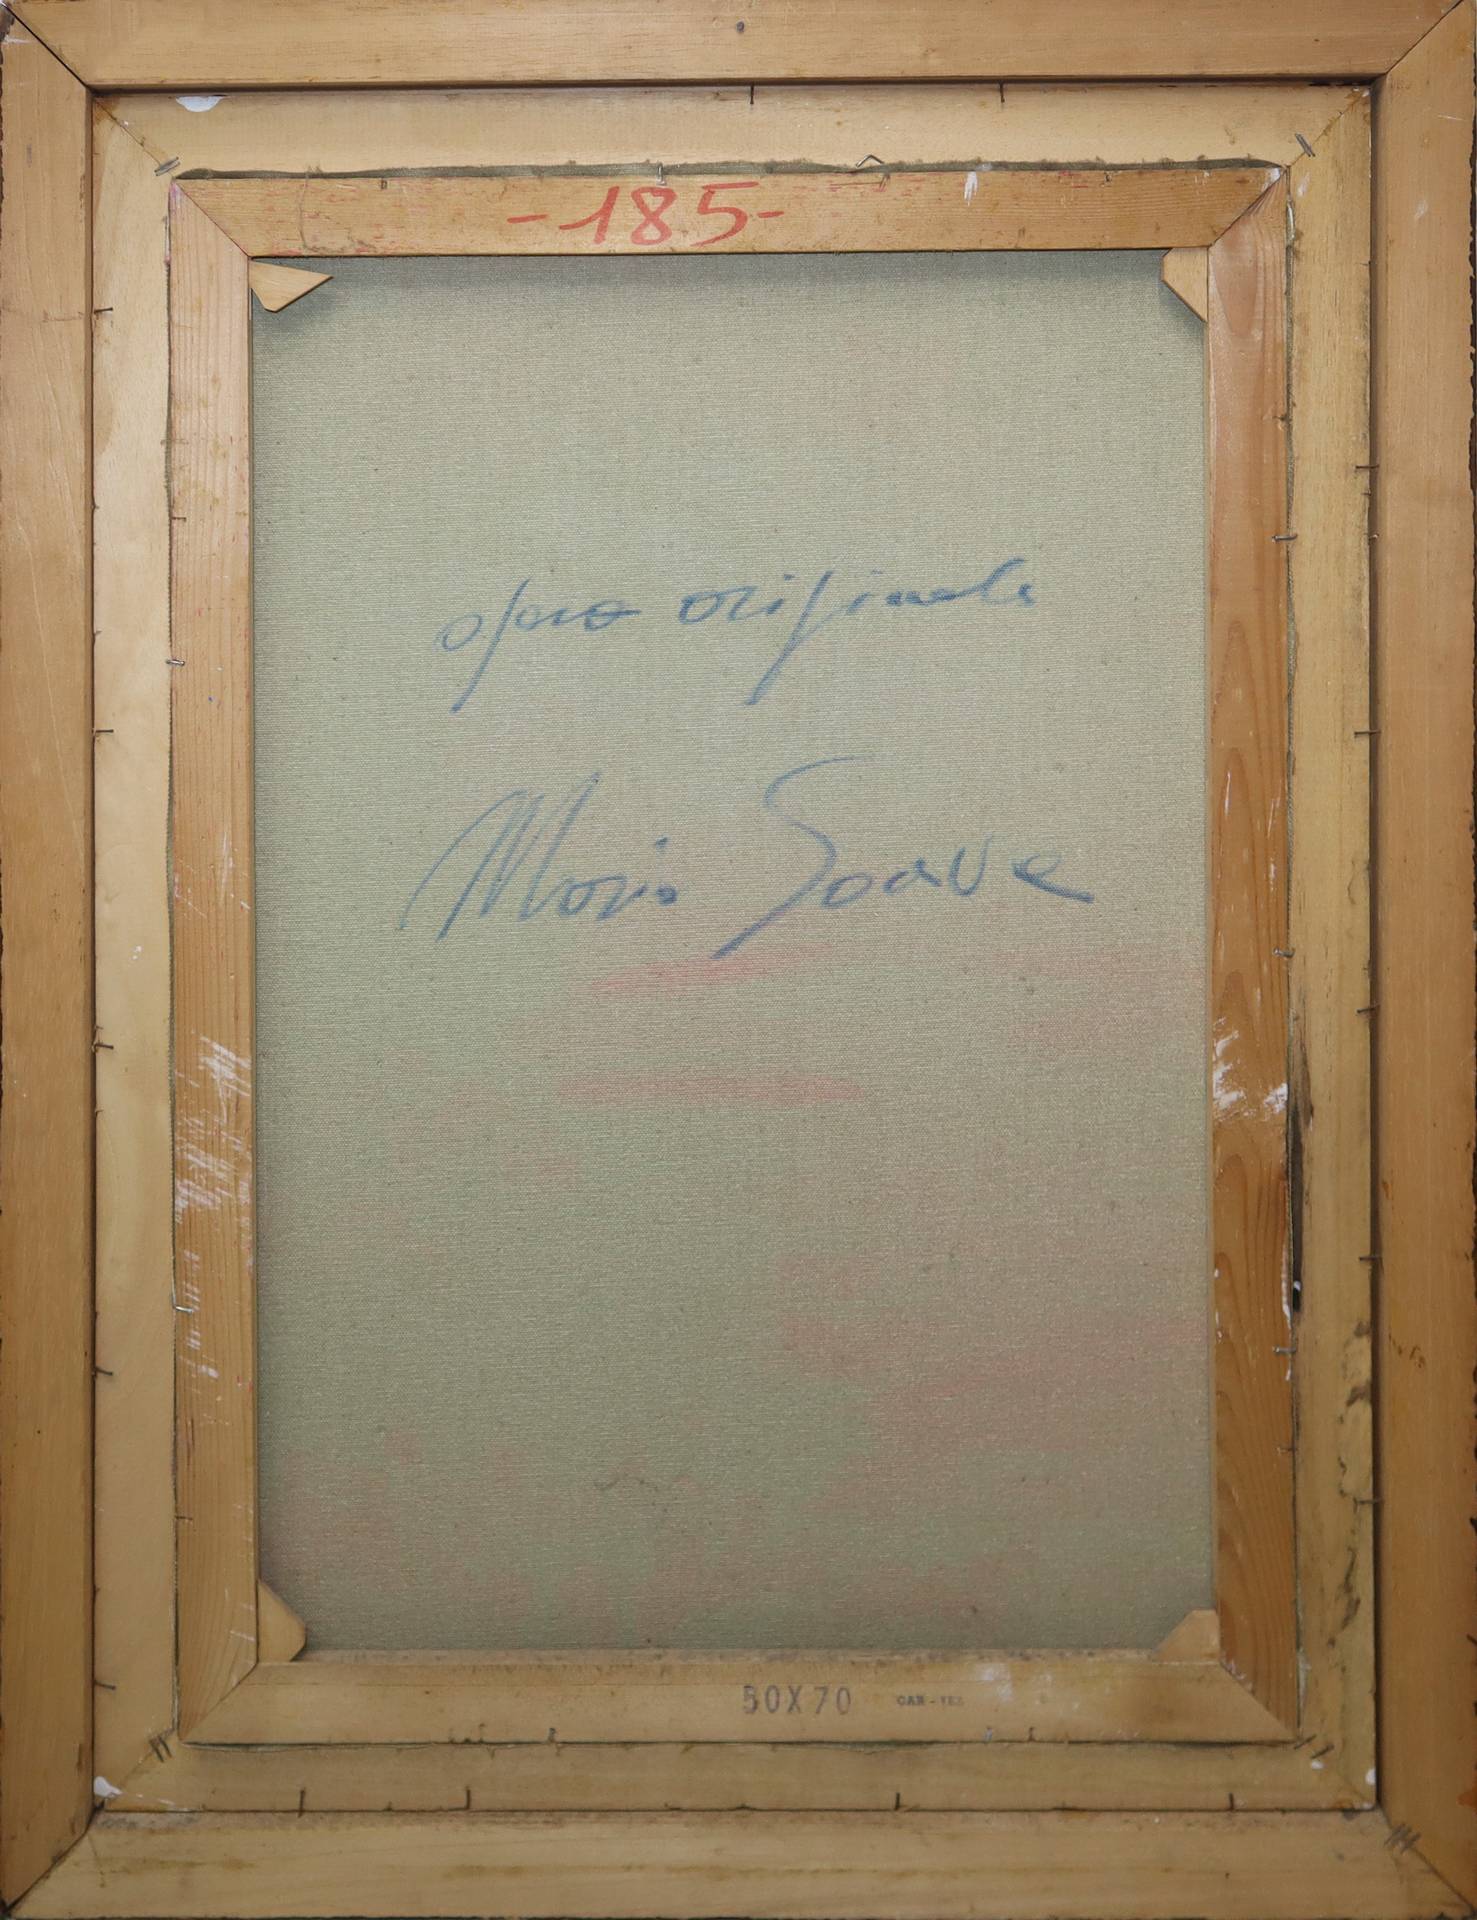 -185-
opera originale
Mario Soave
50X70